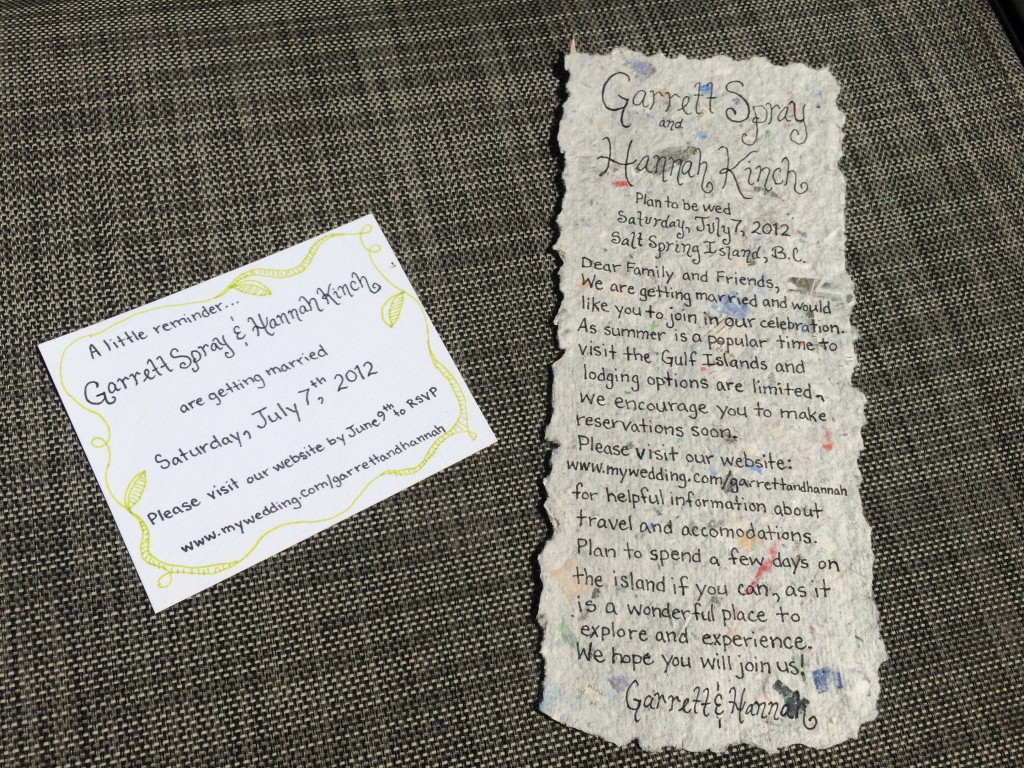 A little reminder...
Garrett Spray & Hannah Kinch
are getting married
Saturday, July 7th, 2012
Please visit our website by June 9th to RSVP
www.mywedding.com/garrettandhannah
Garrett Spray
and
Hannah Kinch
Plan to be wed
Saturday, July 7, 2012
Salt Spring Island, B.C.
Dear Family and Friends,
We are getting married and would
like you to join in our celebration.
As summer is a popular time to
visit the Gulf Islands and
lodging options are limited,
we encourage you to make
reservations soon.
Please visit our website:
www.mywedding.com/garrettandhannah
for helpful information about
travel and accomodations.
Plan to spend a few days on
the island if you can, as it
is a wonderful place to
explore and experience.
We hope you will join us!
Garrett & Hannah